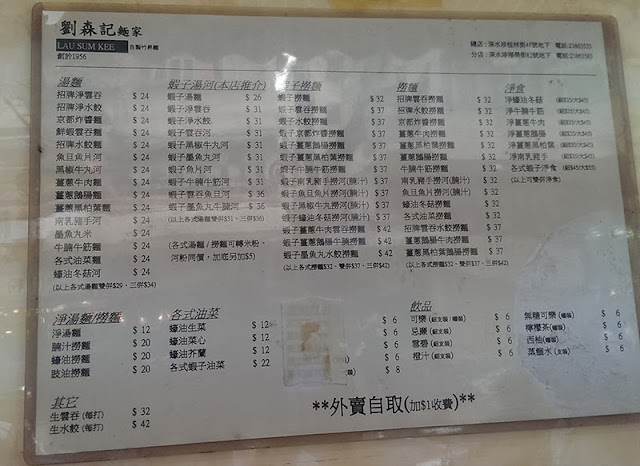 劉森記麵家
LAU SUM KEE 自製竹昇麵
創於1956
總店：深水埗桂林街48號地下 電話:23863533
分店：深水埗福榮街82號地下 電話:23863583
湯麵
招牌淨雲吞 $ 24
招牌淨水餃 $ 24
京都炸醬麵 $ 24
鮮蝦雲吞麵 $ 24
招牌水餃麵 $ 24
魚旦魚片河 $ 24
黑椒牛丸河 $ 24
薑蔥牛肉麵 $ 24
薑蔥鵝腸麵 $ 24
薑蔥黑柏葉麵 $ 24
南乳豬手河 $ 24
墨魚丸米 $ 24
牛腩牛筋麵 $ 24
各式油菜麵 $ 24
蠔油冬菇河 $ 24
(以上各式湯麵雙併$29，三併$34)
蝦子湯河(本店推介)
蝦子湯麵 $ 26
蝦子淨雲吞 $ 31
蝦子淨水餃 $ 31
蝦子雲吞河 $ 31
蝦子黑椒牛丸河 $ 31
蝦子墨魚丸河 $ 31
蝦子牛腩牛筋河 $ 31
蝦子雲吞魚旦河 $ 36
蝦子墨魚丸牛腩河 $ 36
(以上各式湯麵雙併$31，三併$36)
(各式湯麵 / 撈麵可轉米粉，
河粉同價，加底另加$5)
蝦子撈麵
蝦子撈麵 $ 32
蝦子雲吞撈麵 $ 37
蝦子水餃撈麵 $ 37
蝦子京都炸醬撈麵 $ 37
蝦子薑蔥鵝腸撈麵 $ 37
蝦子薑蔥黑柏葉撈麵 $ 37
蝦子牛腩牛筋撈麵 $ 37
蝦子南乳豬手撈河(腩汁) $ 37
蝦子魚旦魚片撈河(腩汁) $ 37
蝦子墨魚丸撈河(腩汁) $ 37
蝦子蠔油冬菇撈河(腩汁) $ 37
蝦子薑蔥牛肉雲吞撈麵 $ 42
蝦子薑蔥鵝腸牛腩撈麵 $ 42
蝦子墨魚丸水餃撈麵 $ 42
(以上各式撈麵$32、雙併$37、三併$42)
撈麵
招牌雲吞撈麵 $ 32
招牌水餃撈麵 $ 32
京都炸醬撈麵 $ 32
薑蔥牛肉撈麵 $ 32
薑蔥鵝腸撈麵 $ 32
薑蔥黑柏葉撈麵 $ 32
牛腩牛筋撈麵 $ 32
南乳豬手撈河(腩汁) $ 32
魚旦魚片撈河(腩汁) $ 32
蠔油冬菇撈麵 $ 32
各式油菜撈麵 $ 32
招牌雲吞水餃撈麵 $ 37
薑蔥鵝腸牛肉撈麵 $ 37
薑蔥黑柏葉鵝腸撈麵 $ 37
(以上各式撈麵$32、雙併$37、三併$42)
淨食
淨蠔油冬菇 (細$35/大$45)
淨牛腩牛筋
淨薑蔥牛肉
淨薑蔥鵝腸
淨薑蔥黑柏葉
淨南乳豬手
各式蝦子淨食
(以上可雙併淨食)
淨湯麵/撈麵
淨湯麵 $ 12
腩汁撈麵 $ 20
蠔油撈麵 $ 20
豉油撈麵 $ 20
各式油菜
蠔油生菜 $ 12
蠔油菜心 $ 12
蠔油芥蘭 $ 12
各式蝦子油菜 $ 22
$ 6
$ 6
$ 6
$ 6
$ 8
飲品
可樂 (鋁支裝) $ 6
忌廉 (鋁支裝) $ 6
雪碧 (鋁支裝) $ 6
橙汁 (鋁支裝) $ 6
無糖可樂 (罐裝) $ 6
檸檬茶 (罐裝) $ 6
西柚 (罐裝) $ 6
蒸餾水 (支裝) $ 6
其它
生雲吞 (每打) $ 32
生水餃 (每打) $ 42
**外賣自取(加$1收費)**